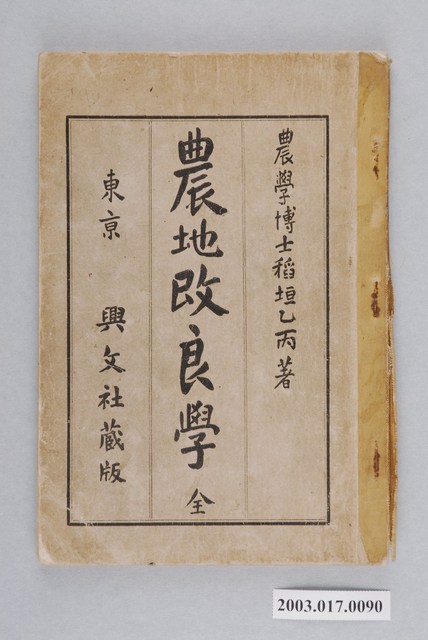 農學博士稻垣乙丙著
農地改良學 全
東京 興文社蔵版
2003.017.0090